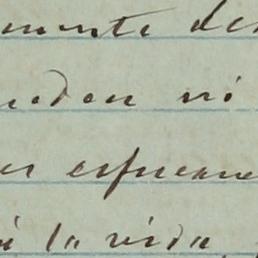 mente de
ueden ni
es esfuerz
i la vida,